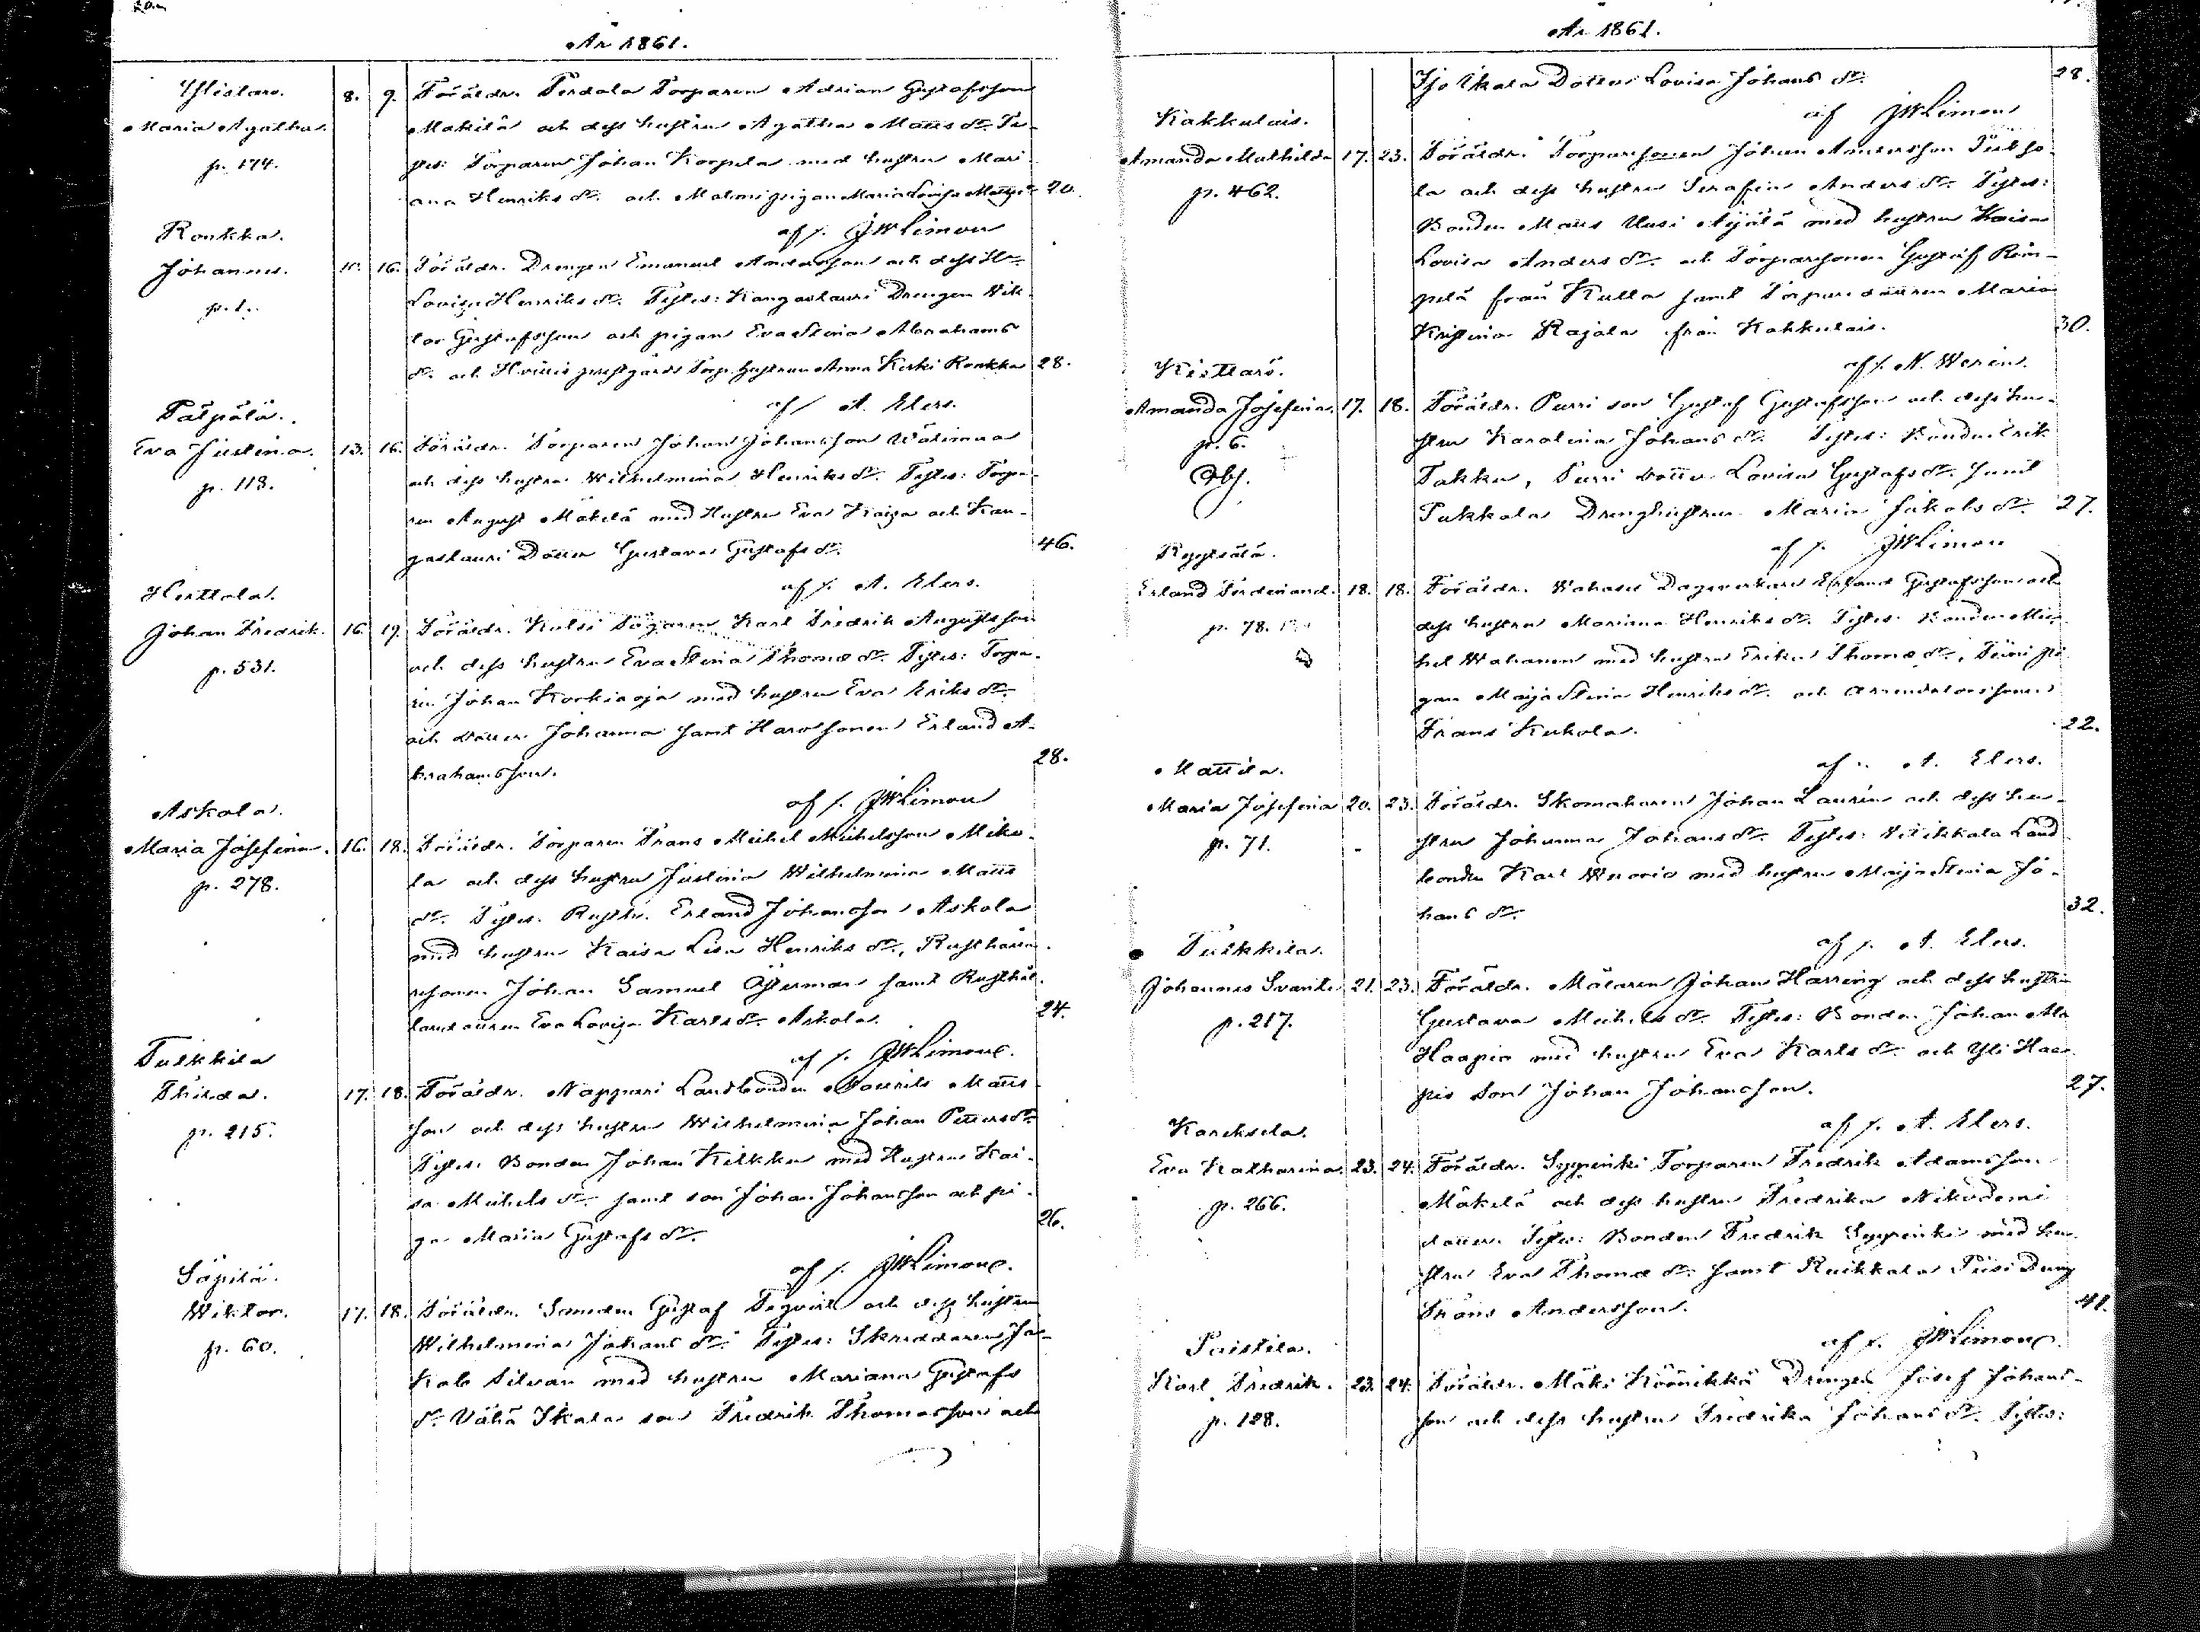 År 1861.
Ylistaro.
Maria Agatha. 8. 9. Föräldr. Perdala Torparen Adrian Gustafsson
p. 174.
Mäkilä och dess hustru Agatha Matts dr. Te-
stes: Torparen Johan Korpela med hustru Mari
ana Henriks dr. och pigan Maria Lovisa 20.
af /. JWLimon
Ronkka.
Johannes. 16. Föräldr. Drengen Emanuel Andersson och dess H
p. 1.
Lovisa Henriks dr. Testes: Kangaslauri Drengen Wik
tor Gustafsson och pigan Eva Stina Abrahams
dr. och prestgårds Torp. hustrun Anna Kerki Ronkka 28.
af / A. Elers.
Pälpälä.
Eva Justina. 13. 16. Föräldr. Torparen Johan Johansson Wälimaa
p. 118.
och dess hustru Wilhelmina Henriks dr. Testes: Torpa-
ren August Mäkelä med Hustru Eva Kaisa och Kan-
gaslauri Dotter Gustava Gustafs dr. 46.
af /. A. Elers.
Herttola.
Johan Fredrik. 16. 19. Föräldr. Karl Fredrik Augustsson
p. 531.
och dess hustru Eva Stina Thomæ dr. Testes: Torpa-
ren Johan Korkiaoja med hustru Eva Eriks dr.
och dotter Johanna samt Harosonen Erland A-
brahamsson. 28.
af /. JWLimon
Askola.
Maria Josefina. 16. 18. Föräldr. Torparen Frans Mickel Mickelsson Miko-
p. 278.
la och dess hustru Justina Wilhelmina Matts
dr. Testes. Rusth. Erland Johansson Askola
med hustru Kaisa Lisa Henriks dr., Rusthålla-
resonen Johan Samuel Österman samt Rusthål-
Eva Lovisa Karls dr. Askola. 24.
af /. JWLimone.
Tulkkila
Thilda. 17. 18. Föräldr. Nappari Landbonden Maurits Matts
p. 215.
son och dess hustru Wilhelmina Johan Petters dr.
Testes: Bonden Johan Kilkku med Hustru Kai-
sa Mickels dr. samt son Johan Johansson och pi-
ga Maria Gustafs dr. 26.
af /. JWLimone.
Säpilä.
Wiktor. 17. 18. Föräldr. Smeden Gustaf Tegvist och dess hustru
p. 60.
Wilhelmina Johans dr. Testes: Skreddaren Ja-
kob Silvan med hustru Mariana Gustafs
dr. Vähä Ikala son Fredrik Thomasson och
År 1861.
Iso Ikala Dotter Lovisa Johans dr. 28.
af JWLimon
Kakkulais.
Amanda Mathilda 17. 23. Föräldr. Torparesonen Johan Andersson
p. 462.
la och dess hustru Serafina Anders dr. Testes:
Bonden Matts Uusi Äijälä med hustru Kaisa
Lovisa Anders dr. och Torparesonen Gustaf Rim-
pelä från Kulla samt Torparedottren Maria
Kristina Rajala från Kakkulais. 30.
af /. N. Werin.
Kiettarö.
Amanda Josefina. 17. 18. Föräldr. Purri son Gustaf Gustafsson och dess hu-
p. 6.
Obs.
stru Karolina Johans dr. Testes: Bonden Erik
Takku, Purri dotter Lovisa Gustafs dr. samt
Pukkala Drenghustrun Maria Jakobs dr. 27.
af /. JWLimon
Ryytsälä.
Erland Ferdinand. 18. 18. Föräldr. Dagsverkare Erland Gustafsson och
p. 78.
dess hustru Mariana Henriks dr. Testes. Bonden Mic-
kel Wahanen med hustru Erika Thomæ dr., pi
gan Maija Stina Henriks dr. och arrendatorssonen
Frans Kukola. 22.
af /. A. Elers.
Mattila.
Maria Josefina 20. 23. Föräldr. Skomakaren Johan Laurin och dess hu-
p. 71.
stru Johanna Johans dr. Testes: Wiikkala Land
bonden Karl Wuorio med hustru Maija Stina Jo-
hans dr. 32.
af /. A. Elers.
Tulkkila.
Johannes Svante 21. 23. Föräldr. Målaren Johan Harring och dess hustru
p. 217.
Gustava Mickels dr. Testes: Bonden Johan Ala
Haapio med hustru Eva Karls dr. och Yli Haa-
pio son Johan Johansson. 27.
af /. A. Elers.
Kareksela.
Eva Katharina 23. 24. Föräldr. Syppinki Torparen Fredrik Adamsson
p. 266.
Mäkelä och dess hustru Fredrika Nikodemi
dotter. Testes: Bonden Fredrik Syppinki med hu-
stru Eva Thomæ dr. samt Raikkala Piisi Dreng
Frans Andersson. 41.
af /. JWLimone.
Paistila.
Karl Fredrik. 23. 24. Föräldr. Mäki Köönikkä Drengen Josef Johans-
p. 128.
son och dess hustru Fredrika Johans dr. Testes: